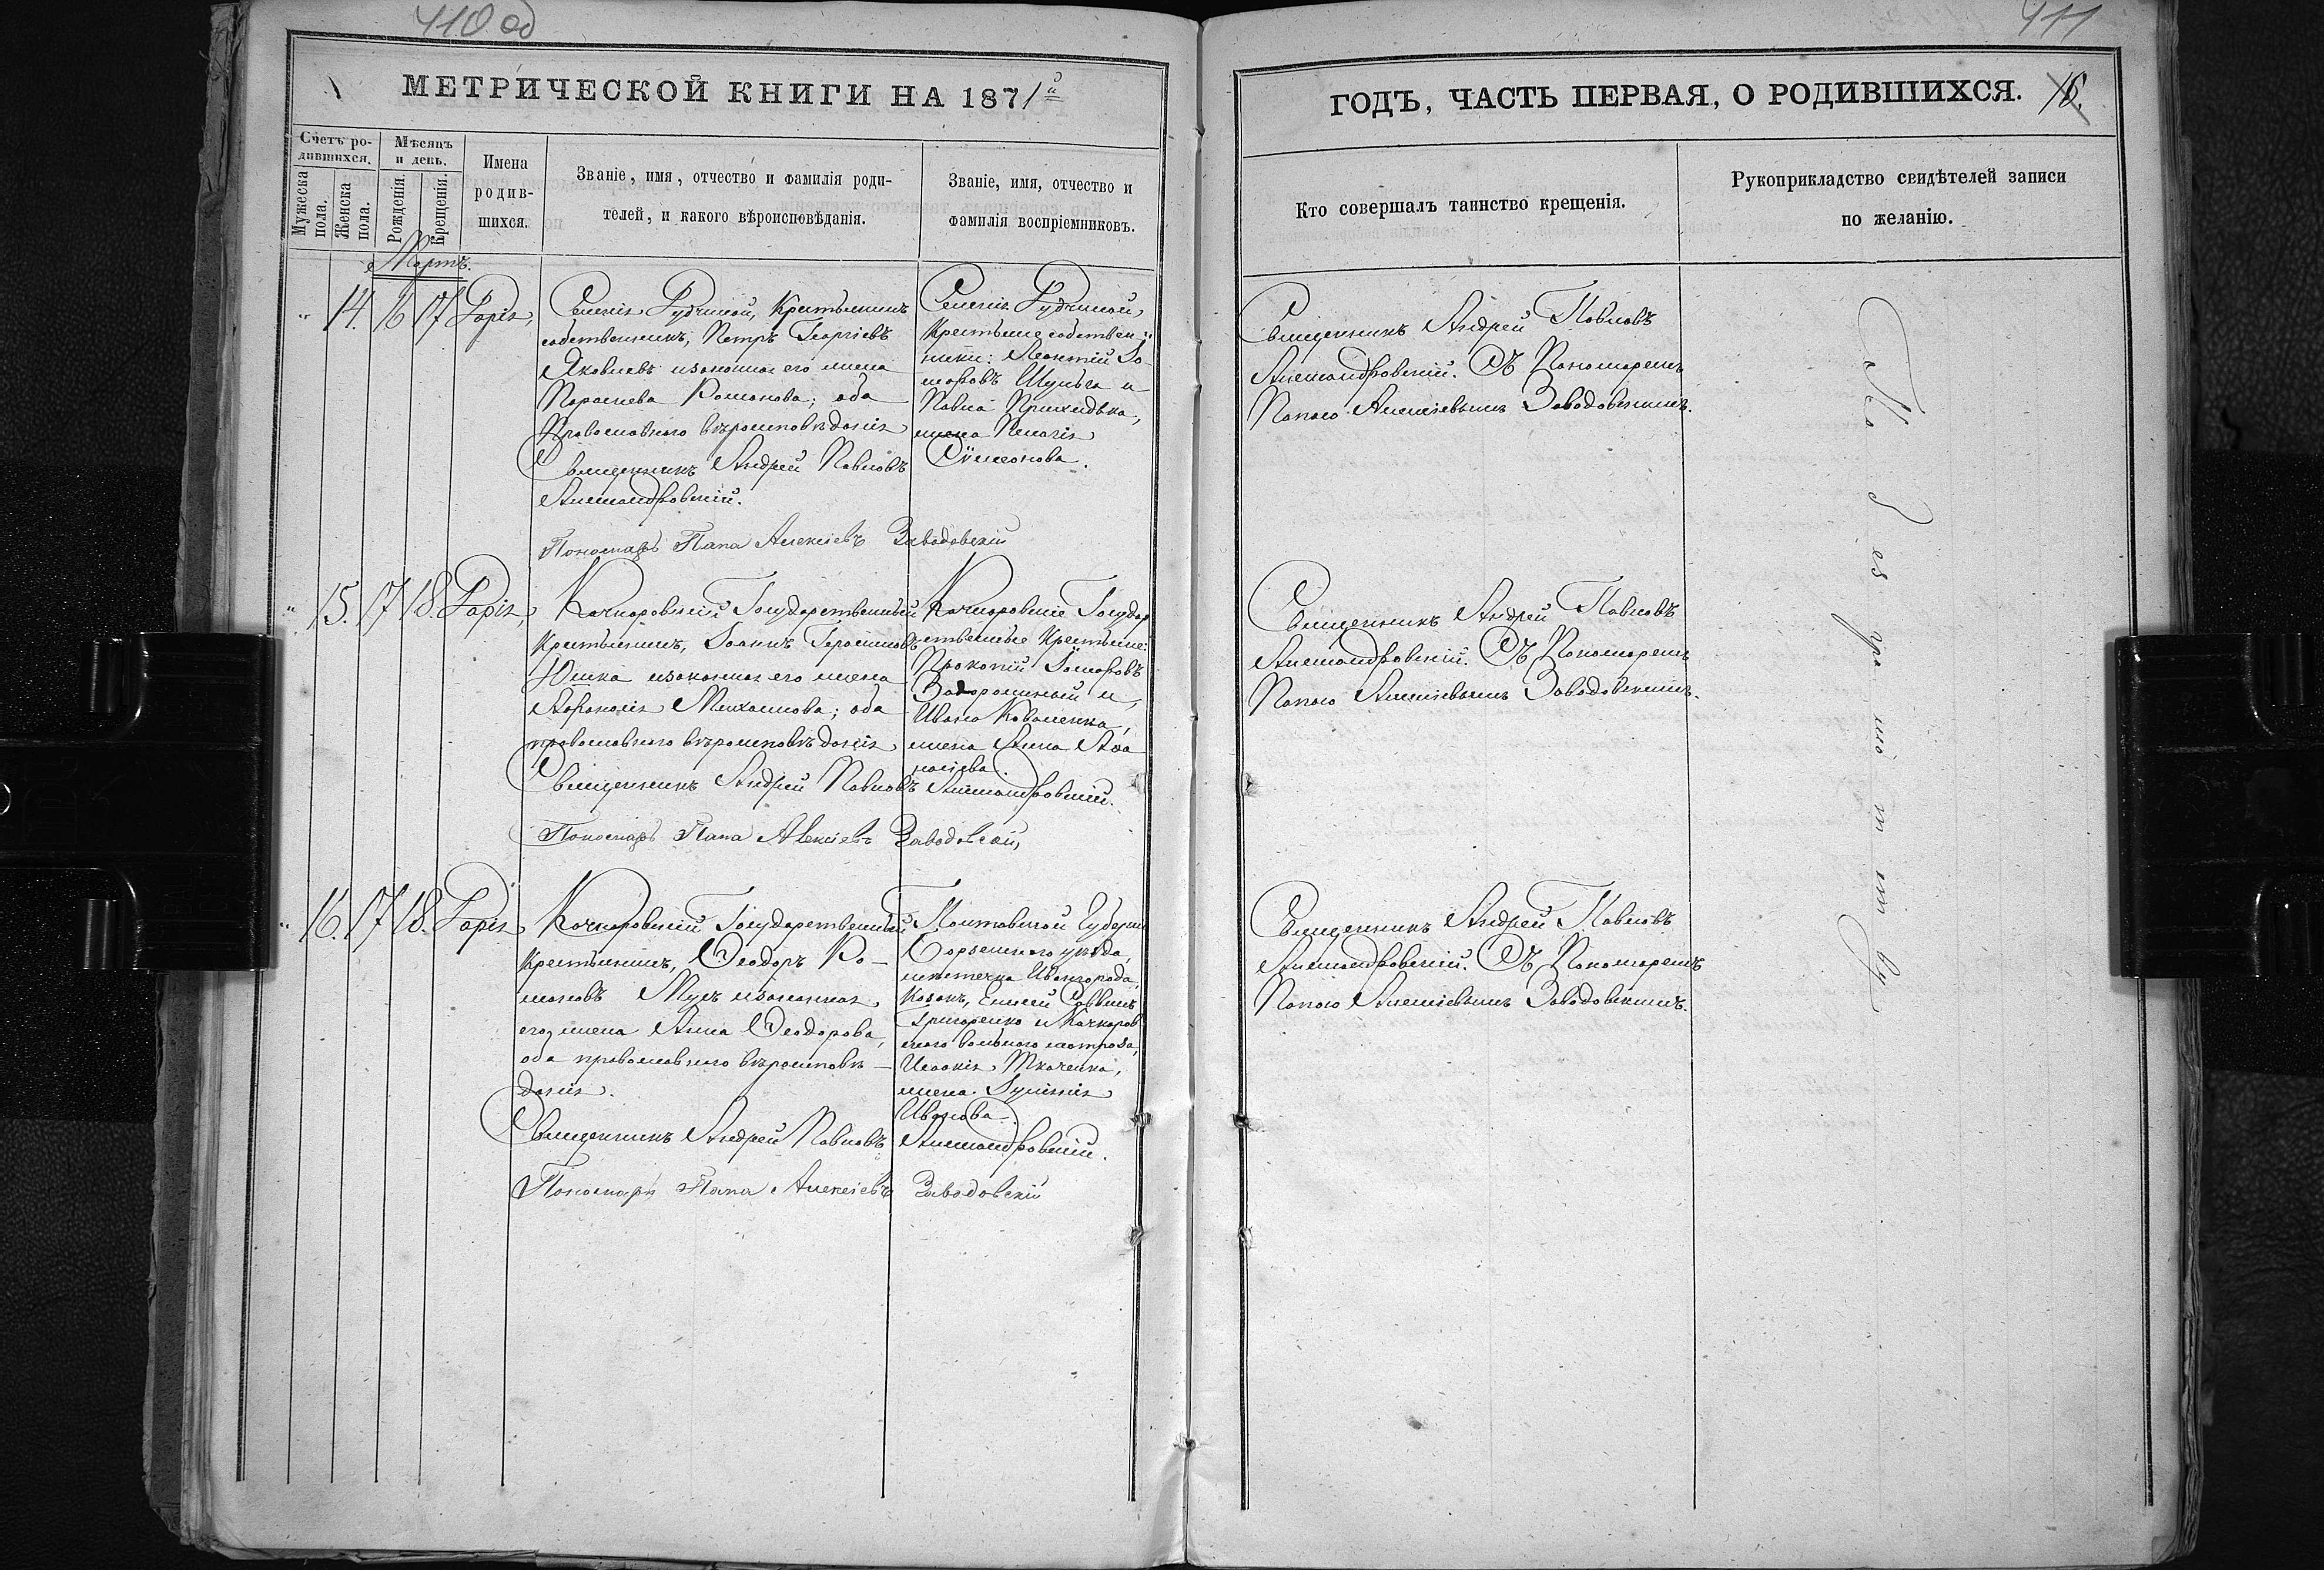 410 об
МЕТРИЧЕСКОЙ КНИГИ НА 1871й
Счетъ ро-
дившихся.
Мѣсяцъ
и день.
Имена
родив-
шихся.
Званіе, имя, отчество и фамилія роди-
телей, и какого вѣроисповѣданія.
Званіе, имя, отчество и
фамилія воспріемниковъ.
Мужеска
пола.
Женска
пола.
Рожденія.
Крещенія.
Мартъ.
" 14. 16 17 Дарія,
Селенія Рудчиной, Крестьянинъ
собственникъ, Петръ Георгіевъ
Яковлевъ изаконная его жена
Параскева Романова; оба
Православнаго вѣроисповѣданія
Священникъ Андрей Павловъ
Александровскій.
Пономарь Папа Алексіевъ Заводовскій
Селенія Рудчиной,
Крестьяне собствен-
ники: Леонтій
Шульга и
Павла
жена Пелагія
Сѵмеонова.
" 15. 17 18. Дарія,
Качкаровскій Государственный
Крестьянинъ, Іоаннъ Герасимовъ
Юшка изаконная его жена
Афанасія Михаилова; оба
православнаго вѣроисповѣданія
Священникъ Андрей Павловъ Александровскій.
Пономарь Папа Алексіевъ Заводовскій,
Качкаровскіе Государ
ственные Крестьяне:
Прокопій
и
Ивана Коваленка,
жена Анна Аѳа
насіева.
" 16. 17 18. Дарія
Качкаровскій Государственный
Крестьянинъ, Ѳеодоръ Ро-
мановъ Муха изаконная
его жена Анна Ѳеодорова,
оба православнаго вѣроисповѣ-
данія.
Священникъ Андрей Павловъ Александровскій.
Пономарь Папа Алексіевъ Заводовскій
Полтавской Губерніи
Борзенского уѣзда,
мѣстечка Иваногорода,
Козакъ, Елисей Саввинъ
Григоренко и Качкаров
ского вольного матроза,
Ткаченка,
жена Еѵѳимія
Иванова.
411
ГОДЪ, ЧАСТЬ ПЕРВАЯ, О РОДИВШИХСЯ. 16.
Кто совершалъ таинство крещенія.
Рукоприкладство свидѣтелей записи
по желанію.
Священникъ Андрей Павловъ
Александровскій. Съ Пономаремъ
Папою Алексіевымъ Заводовскимъ.
Священникъ Андрей Павловъ
Александровскій. Съ Пономаремъ
Папою Алексіевымъ Заводовскимъ.
Священникъ Андрей Павловъ
Александровскій. Съ Пономаремъ
Папою Алексіевымъ Заводовскимъ.